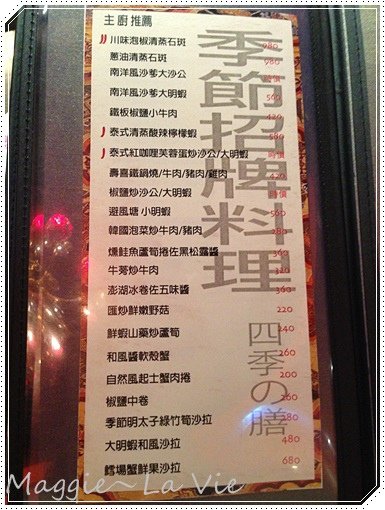 主廚推薦
川味泡椒清蒸石斑 980
蔥油清蒸石斑 980
南洋風沙爹大沙公 時價
南洋風沙爹大明蝦 560
鐵板椒鹽小牛肉 420
泰式清蒸酸辣檸檬蝦 580
泰式紅咖哩芙蓉蛋炒沙公/大明蝦 時價
壽喜鐵鍋燒/牛肉/豬肉/雞肉 420
椒鹽炒沙公/大明蝦 時價
避風塘 小明蝦 560
韓國泡菜炒牛肉/豬肉 280
燻鮭魚蘆筍捲佐黑松露醬 360
牛蒡炒牛肉 320
澎湖冰卷佐五味醬 360
匯炒鮮嫩野菇 220
鮮蝦山藥炒蘆筍 240
和風醬軟殼蟹 260
自然風起士蟹肉捲 200
椒鹽中卷 260
季節明太子綠竹筍沙拉 280
大明蝦和風沙拉 480
鱈場蟹鮮果沙拉 680
季節招牌料理
四季の膳
Maggie~ La Vie